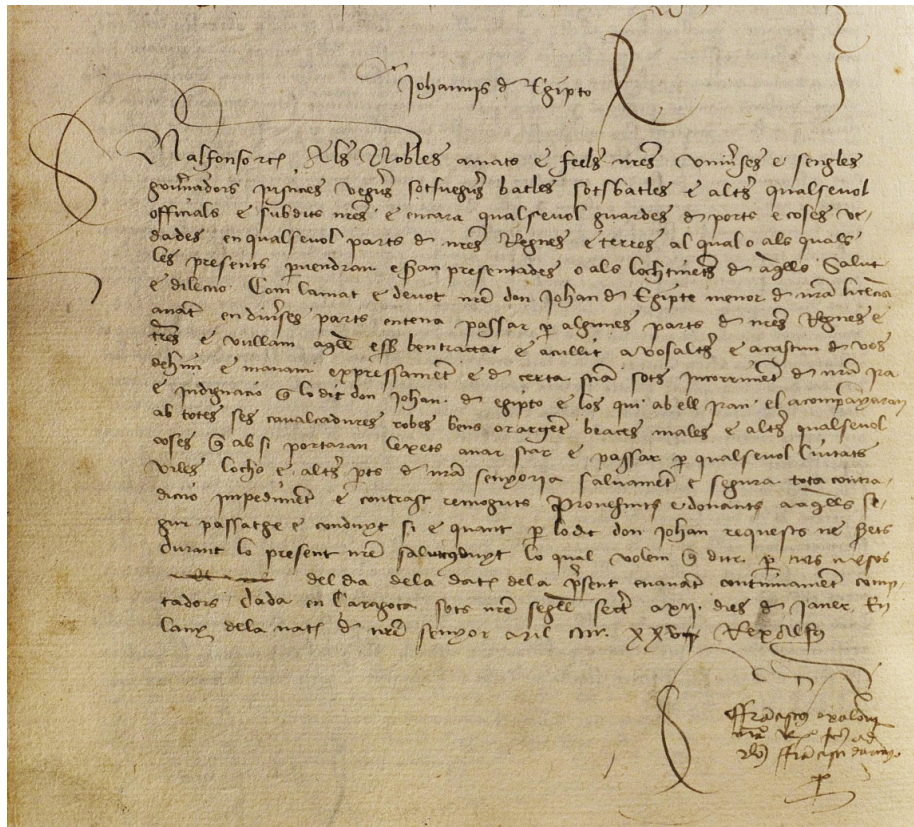 Johannis d Egipto
N alfonso etc Als Nobles amats e feels nres univses e sengles
govnadors justicies veguers sotsveguers batles sotsbatles e altres qualsevol
officials e subdits nres e encara qualsevol guardes d ports e coses ve-
dades en qualsevol parts d nres Regnes e terres al qual o als quals
les presents pvendran e seran presentades o als lochtinets d aqlls Salut
e dileccio. Com lamat e devot nre don Johan d Egipte menor d nra licencia
anat en divses parts entena passar p algunes parts d nres Regnes e
tres e vullam aqll esser ben tractat e acullit a vosaltres e a cascun d vos
dehim e manam expressamet e d certa sciencia sots incorrimet d nra ira
e indignacio q lo dit don Johan d egipto e los qui ab ell iran e l acompanyaran
ab totes ses cavalcadures robes bens or arget beaces males e altres qualsevol
coses q ab si portaran lexets anar star e passar p qualsevol Ciutats
viles lochs e altres pts d nra senyoria salvamet e segura tota contra-
diccio impedimet e contrast remoguts Provehints e donants a aqlls se-
gur passatge e conduyt si e quant p lo dit don Johan requests ne serets
durant lo present nre salvconduyt lo qual volem q dur p tres mesos
del dia dela dat dela psent enavant continuamet comp-
tadors. Dada en Caragoca sots nre segell secret a xii dies d Janer. En
lany dela nat d nre senyor Mil cccc xxv Rex Alfo
Franciscus
Francisci